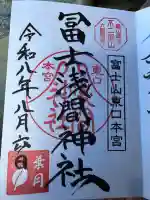 富士山東口本宮
冨士浅間神社
東口
本宮
令和八年八月六
葉月